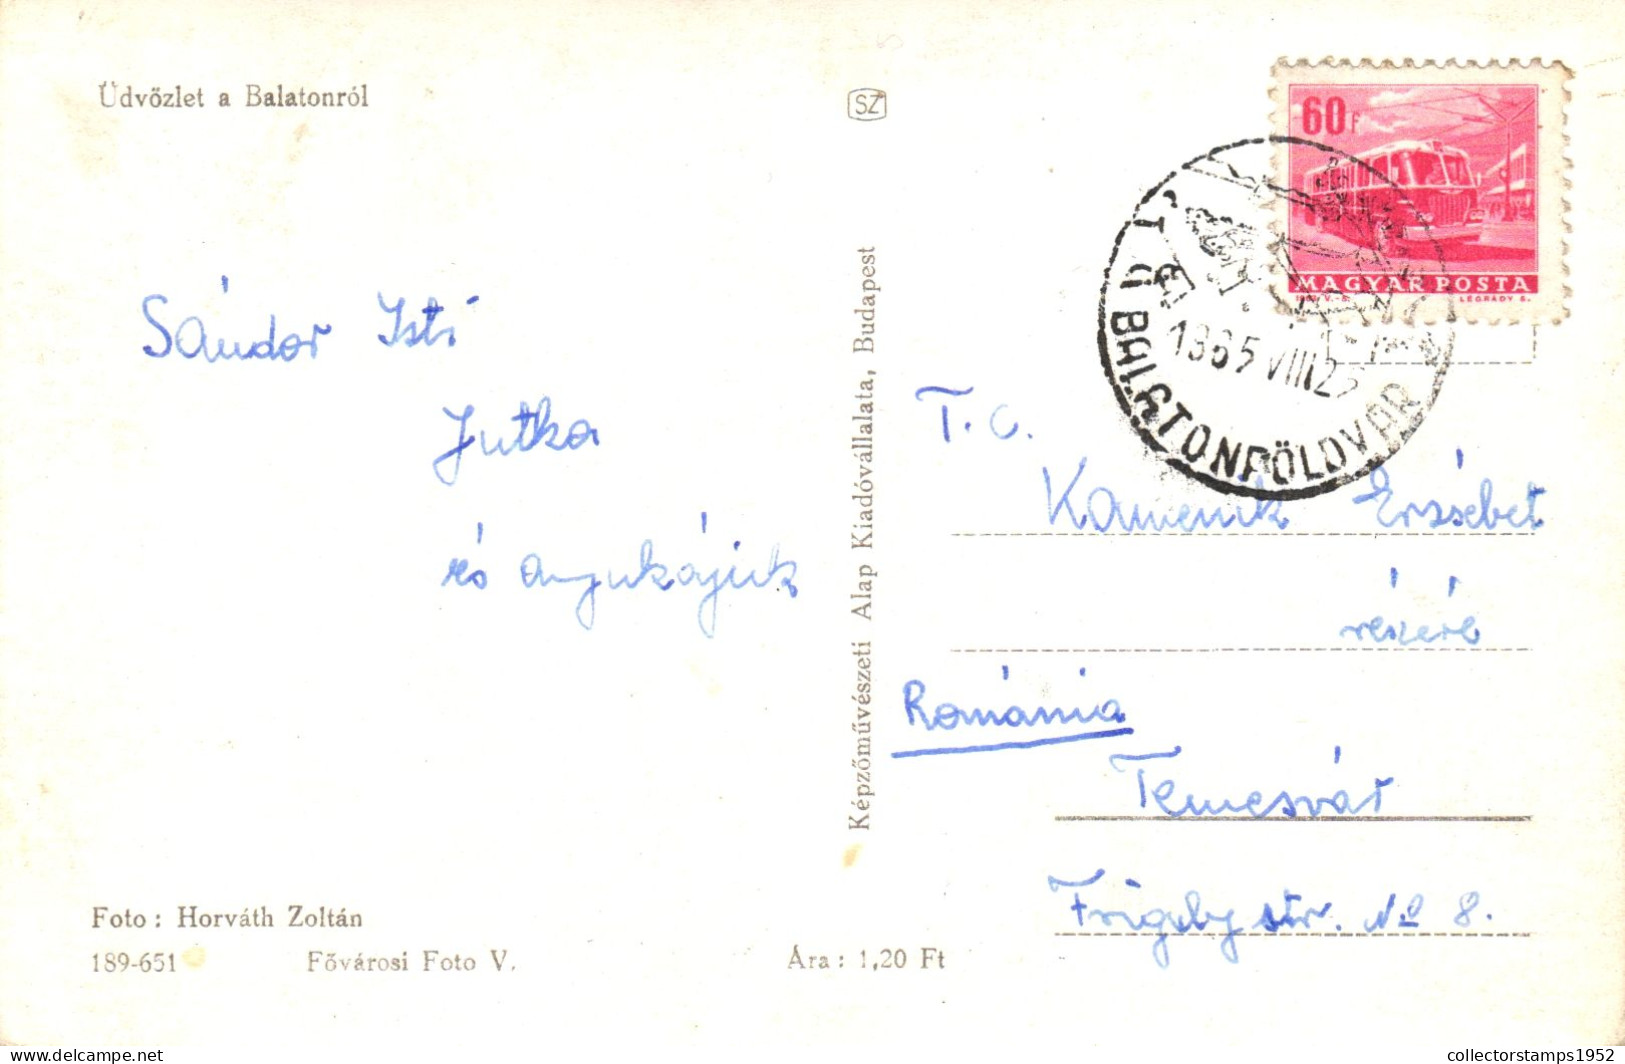 Üdvözlet a Balatonról
SZ
60f
MAGYAR POSTA
LÉGRÁDY S.
1965 VIII 2
BALATONFÖLDVÁR
Sándor Isti
Jutka
és anyukájuk
Képzőművészeti Alap Kiadóvállalata, Budapest
T. C.
Kamenik Erzsébet
részére
Románia
Temesvár
str. No 8.
Foto: Horváth Zoltán
189-651 Fővárosi Foto V.
Ára: 1,20 Ft
delcampe.net
collectorstamps1952